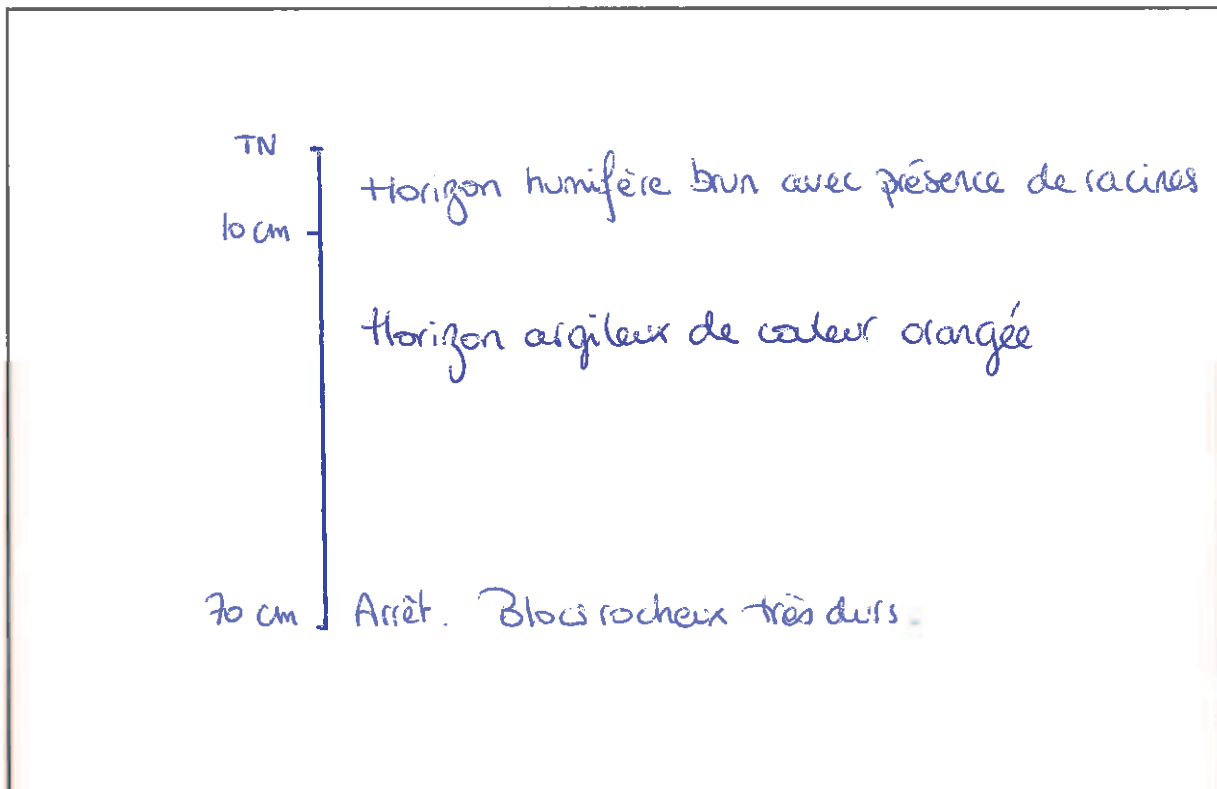 TN
Horizon humifère brun avec présence de racines
10 cm
Horizon argileux de couleur orangée
70 cm Arrêt. Blocs rocheux très durs.